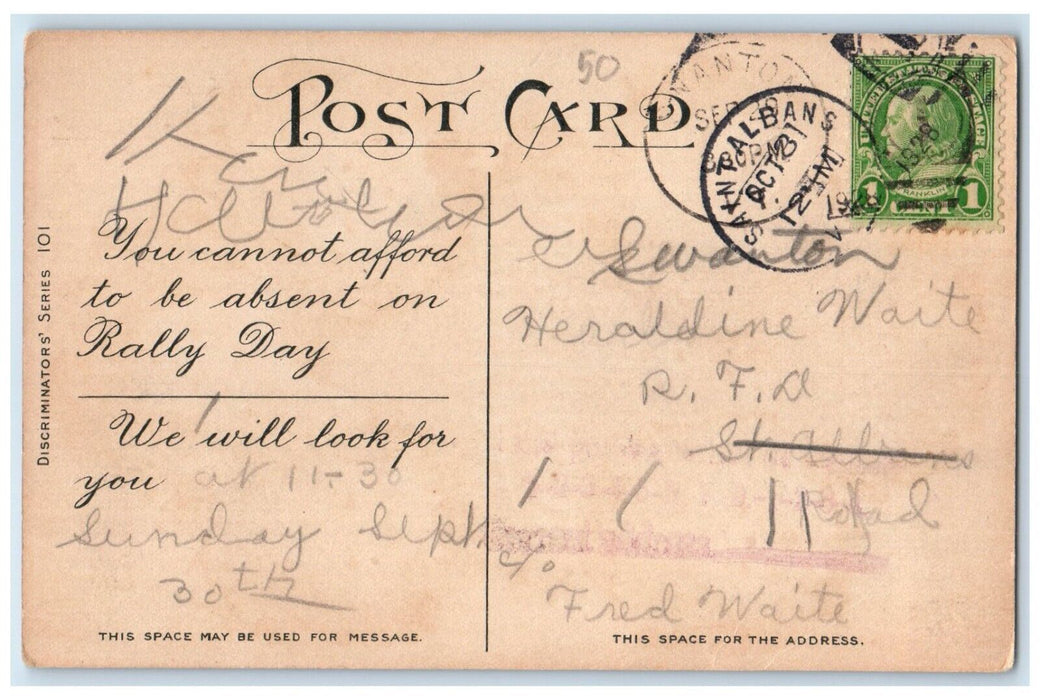 50
POST CARD
SWANTON
SEP 29
SAINT ALBANS
OCT
12 M
1928
1 1
FRANKLIN
You cannot afford
to be absent on
Rally Day
We will look for
you at 11-30
Sunday Sept
30th
THIS SPACE MAY BE USED FOR MESSAGE.
DISCRIMINATORS' SERIES 101
Swanton
Heraldine Waite
R. F. D
St. Albans
Road
c/o
Fred Waite
THIS SPACE FOR THE ADDRESS.